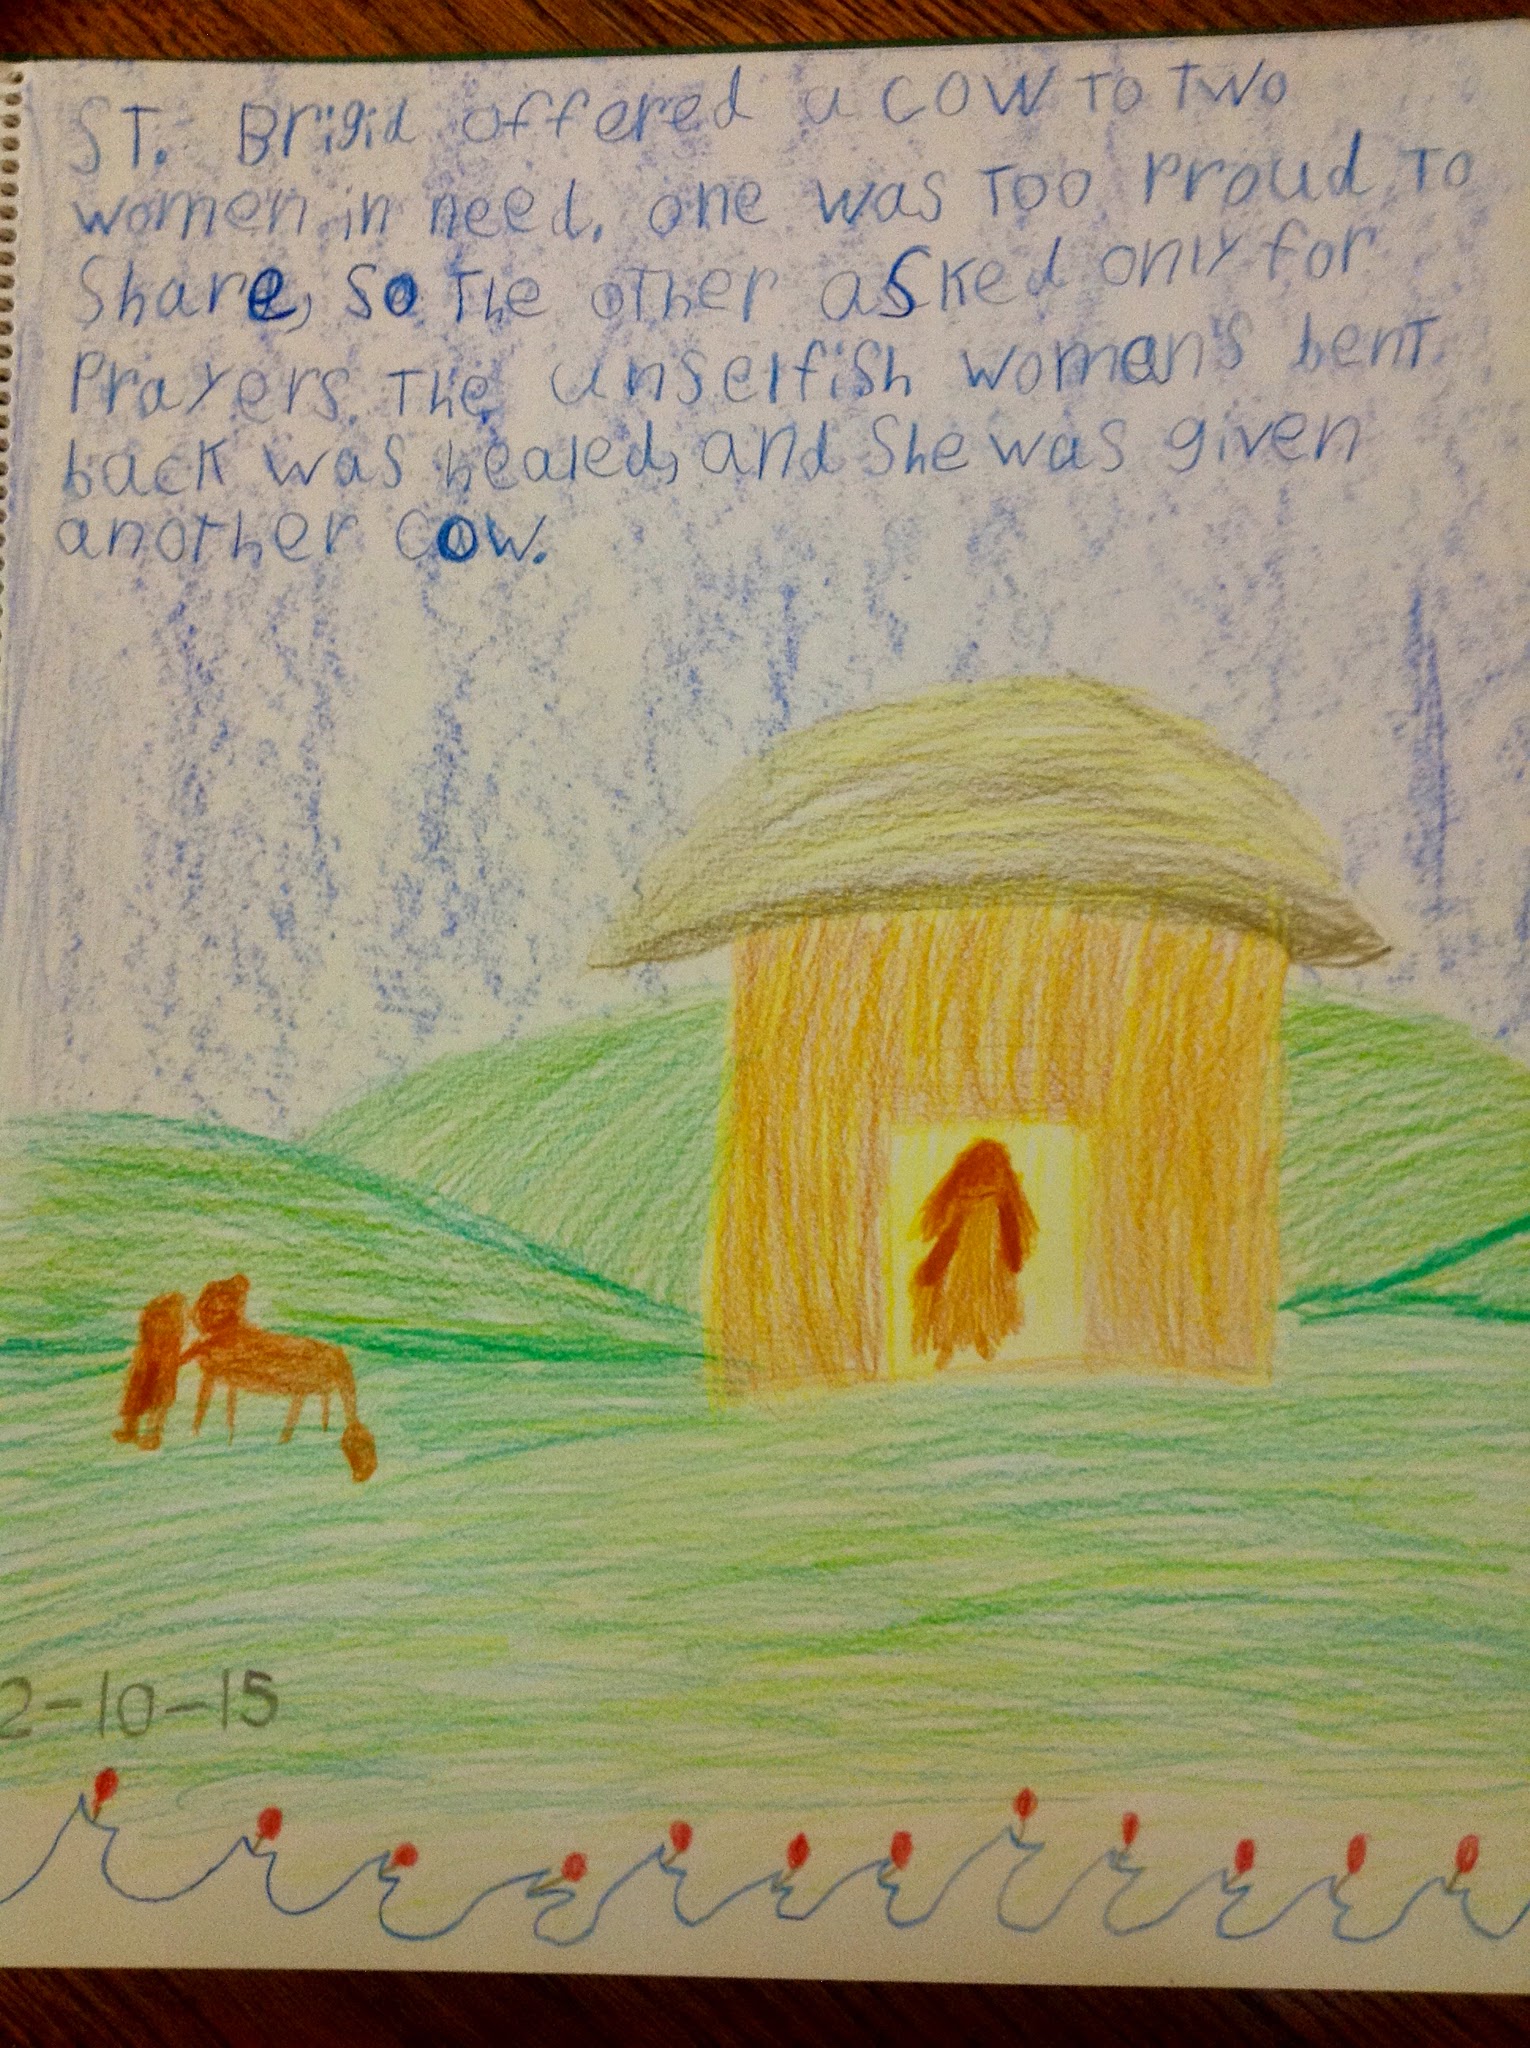 ST. Brigid offered a cow To Two
women in need. one was Too Proud To
Share, so The oTher asked only for
Prayers. The unselfish woman's benT
back was healed, and She was given
anoTher cow.
2-10-15